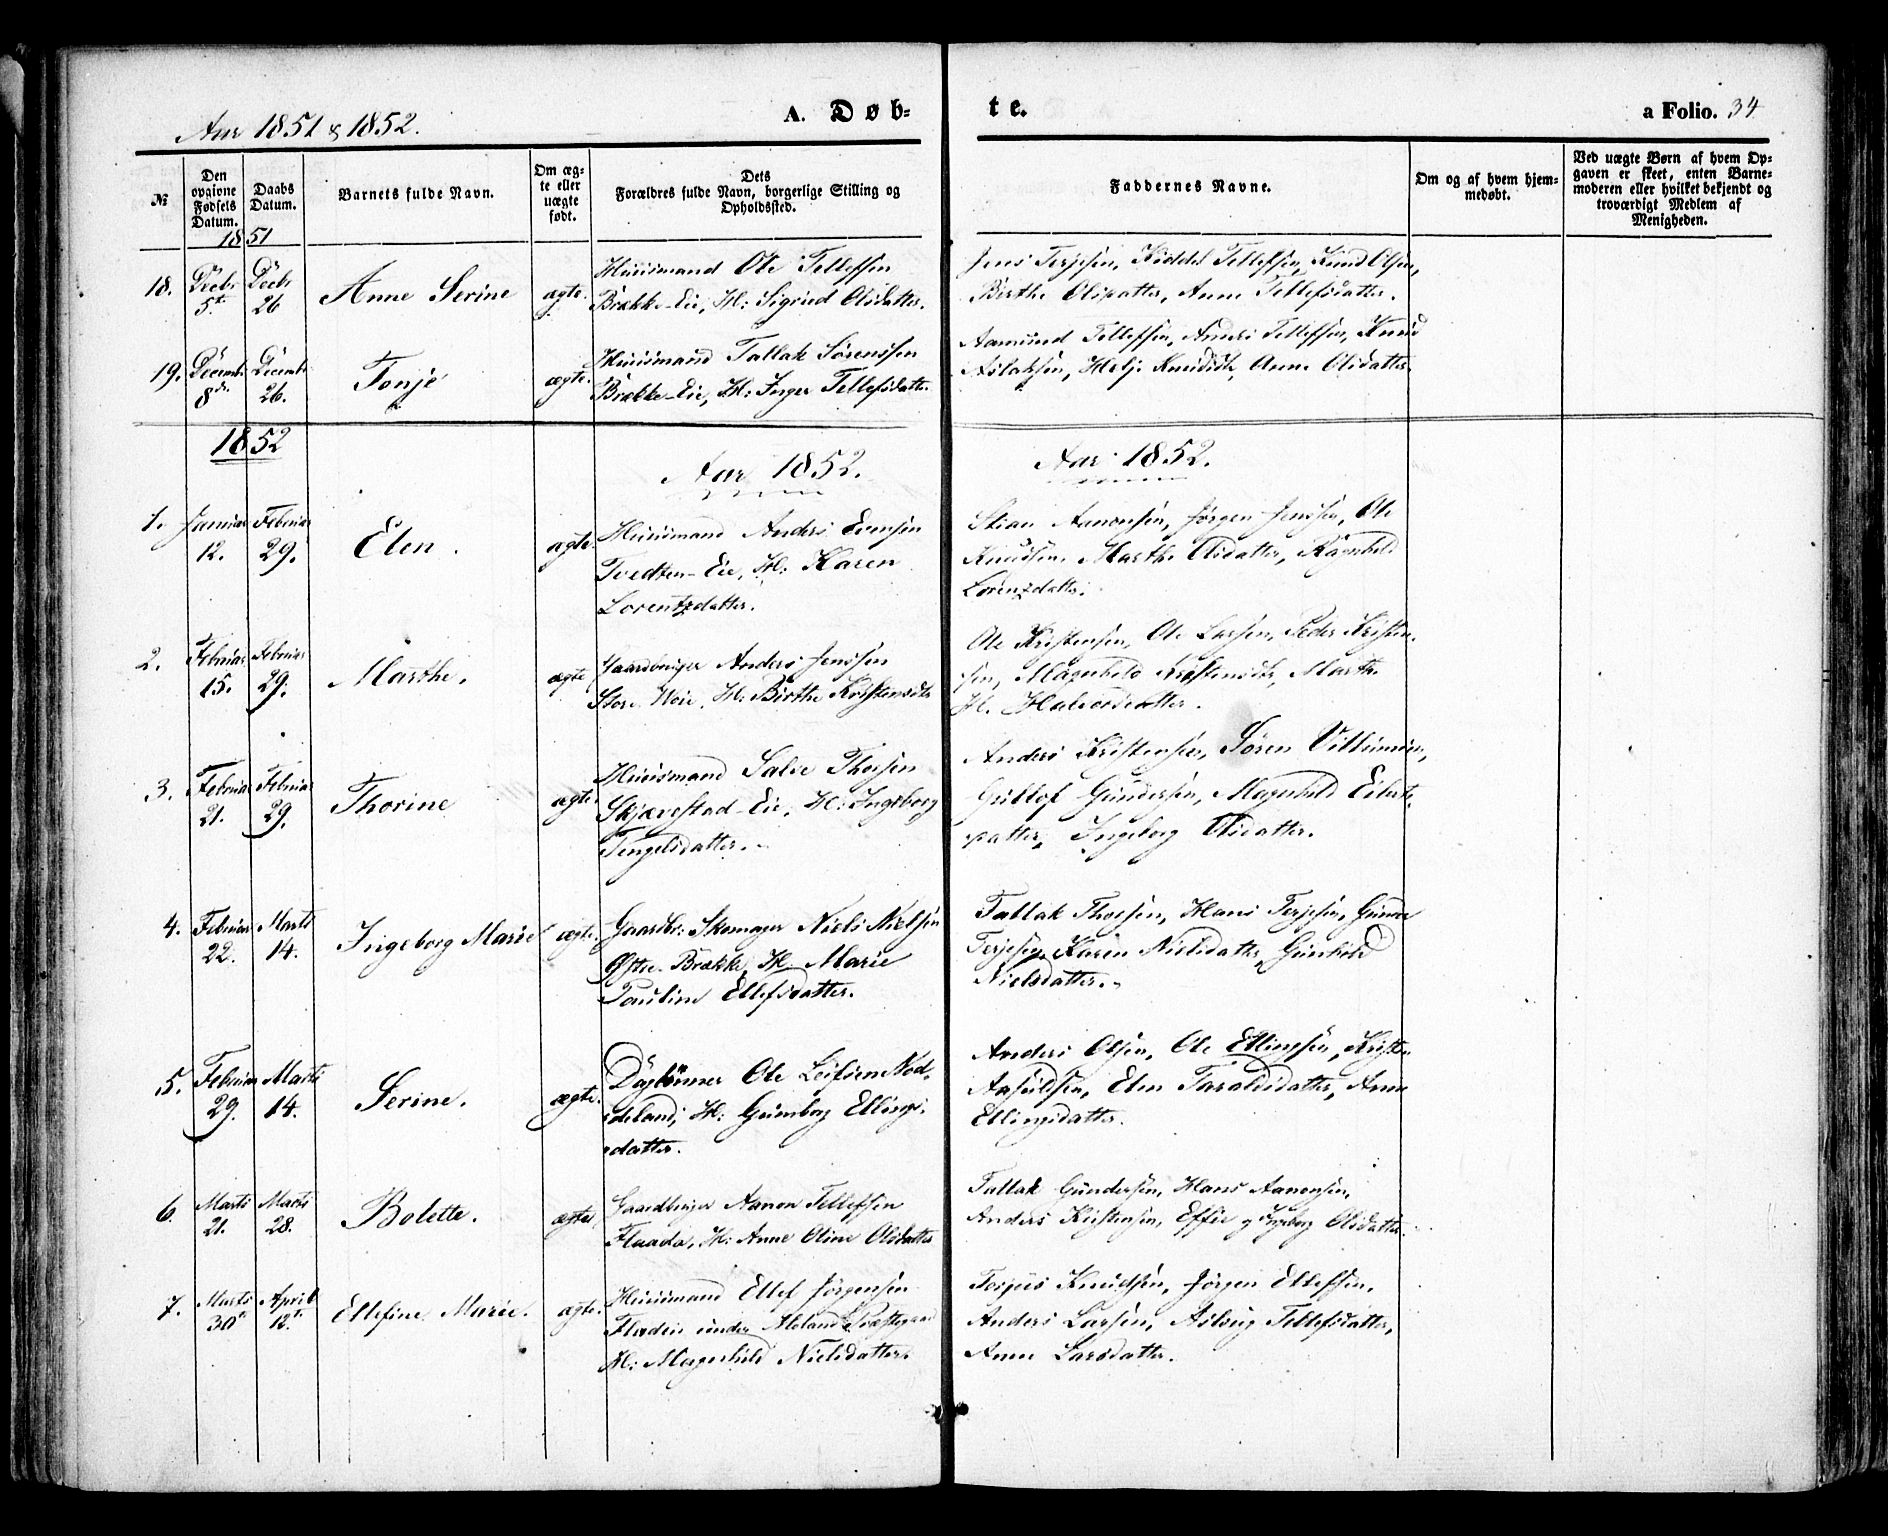 Aar 1851 & 1852.
A. Døb-
te.
a Folio. 34
№
Den opgivne Fødsels Datum.
Daabs Datum.
Barnets fulde Navn.
Om æg-
te eller
uægte
født.
Dets
Forældres fulde Navn, borgerlige Stilling og
Opholdssted.
Faddernes Navne.
Om og af hvem hjem-
medøbt.
Ved uægte Børn af hvem Op-
gaven er skeet, enten Barne-
moderen eller hvilket bekjendt og
troværdigt Medlem af
Menigheden.
1851
18. Decbr 5te Decbr 26 Anne Serine ægte.
Huusmand Ole Tellefsen
Brække-Eie, H: Sigrid Olsdatter.
Jens Terjesen, Kiddel Tellefsen, Knud Olsen,
Birthe Olsdatter, Anne Tellefsdatter.
19. Decembr 8de Decembr 26. Tonje ægte.
Huusmand Tallak Sørenssen
Brække-Eie, H: Inger Tellefsdatter.
Aamund Tellefsen, Anders Tellefsen, Knud
Aslaksen, Helje Knudsdtr, Anne Olsdatter.
1852
Aar 1852.
Aar 1852.
1. Januar 12. Februar 29. Elen. ægte.
Huusmand Anders Evensen
Tvedten-Eie, H: Karen
Lorentzdatter.
Stian Aanonsen, Jørgen Jenssen, Ole
Knudsen, Marthe Olsdatter, Ragnhild
Lorentzdatter.
2. Februar 15. Februar 29. Marthe. ægte
Gaardbruger Anders Jenssen
Store Woie, H: Birthe Kristensdtr
Ole Kristensen, Ole Larsen, Peder Kristen-
sen, Magnhild Kristensdtr, Marthe
H. Halvorsdatter.
3. Februar 21. Februar 29. Thorine ægte.
Huusmand Salve Thorsen
Skjævestad-Eie, H: Ingeborg
Tengelsdatter.
Anders Kristensen, Søren Villumsen,
Gullof Gundersen, Magnhild Eilerts-
datter, Ingeborg Olsdatter.
4. Februar 22. Marts 14. Ingeborg Marie ægte.
Gaardbr: Skomager Niels Nielsen
Østre Brække, H. Marie
Pauline Ellefsdatter.
Tallak Thorsen, Hans Terjesen, Gunder
Terjesen, Karen Nielsdatter, Gunhild
Nielsdatter.
5. Februar 29. Marts 14. Serine. ægte.
Dagbunner Ole Leifsen Nod-
deland, H: Gunborg Ellings-
datter.
Anders Olsen, Ole Ellingsen, Kristen
Aasuldsen, Elen Taraldsdatter, Anne
Ellingsdatter.
6. Marts 21. Marts 28. Bolette. ægte
Gaardbruger Aanon Tellefsen
Flaada, H: Anne Oline Olsdatter
Tallak Gundersen, Hans Aanonsen,
Anders Kristensen, Effie og Ingeborg Olsdatter.
7. Marts 30te April 12te Ellefine Marie. ægte.
Huusmand Ellef Jørgensen
Fladen under Aleland Præstegaard
H: Magnhild Nielsdatter.
Torjus Knudsen, Jørgen Ellefsen,
Anders Larsen, Aslaug Tellefsdatter,
Anne Larsdatter.